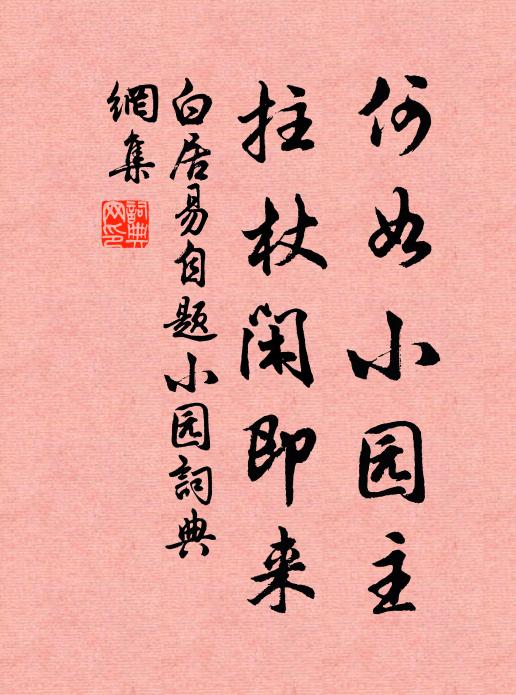 何如小园主
拄杖闲即来
白居易自题小园詞典
網集
詞典
网印